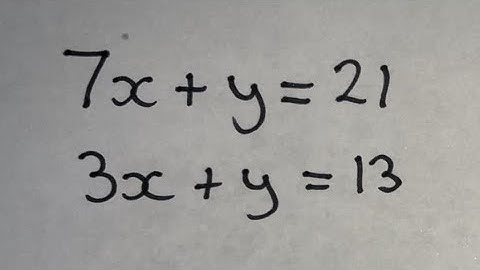 7x + y = 21
3x + y = 13